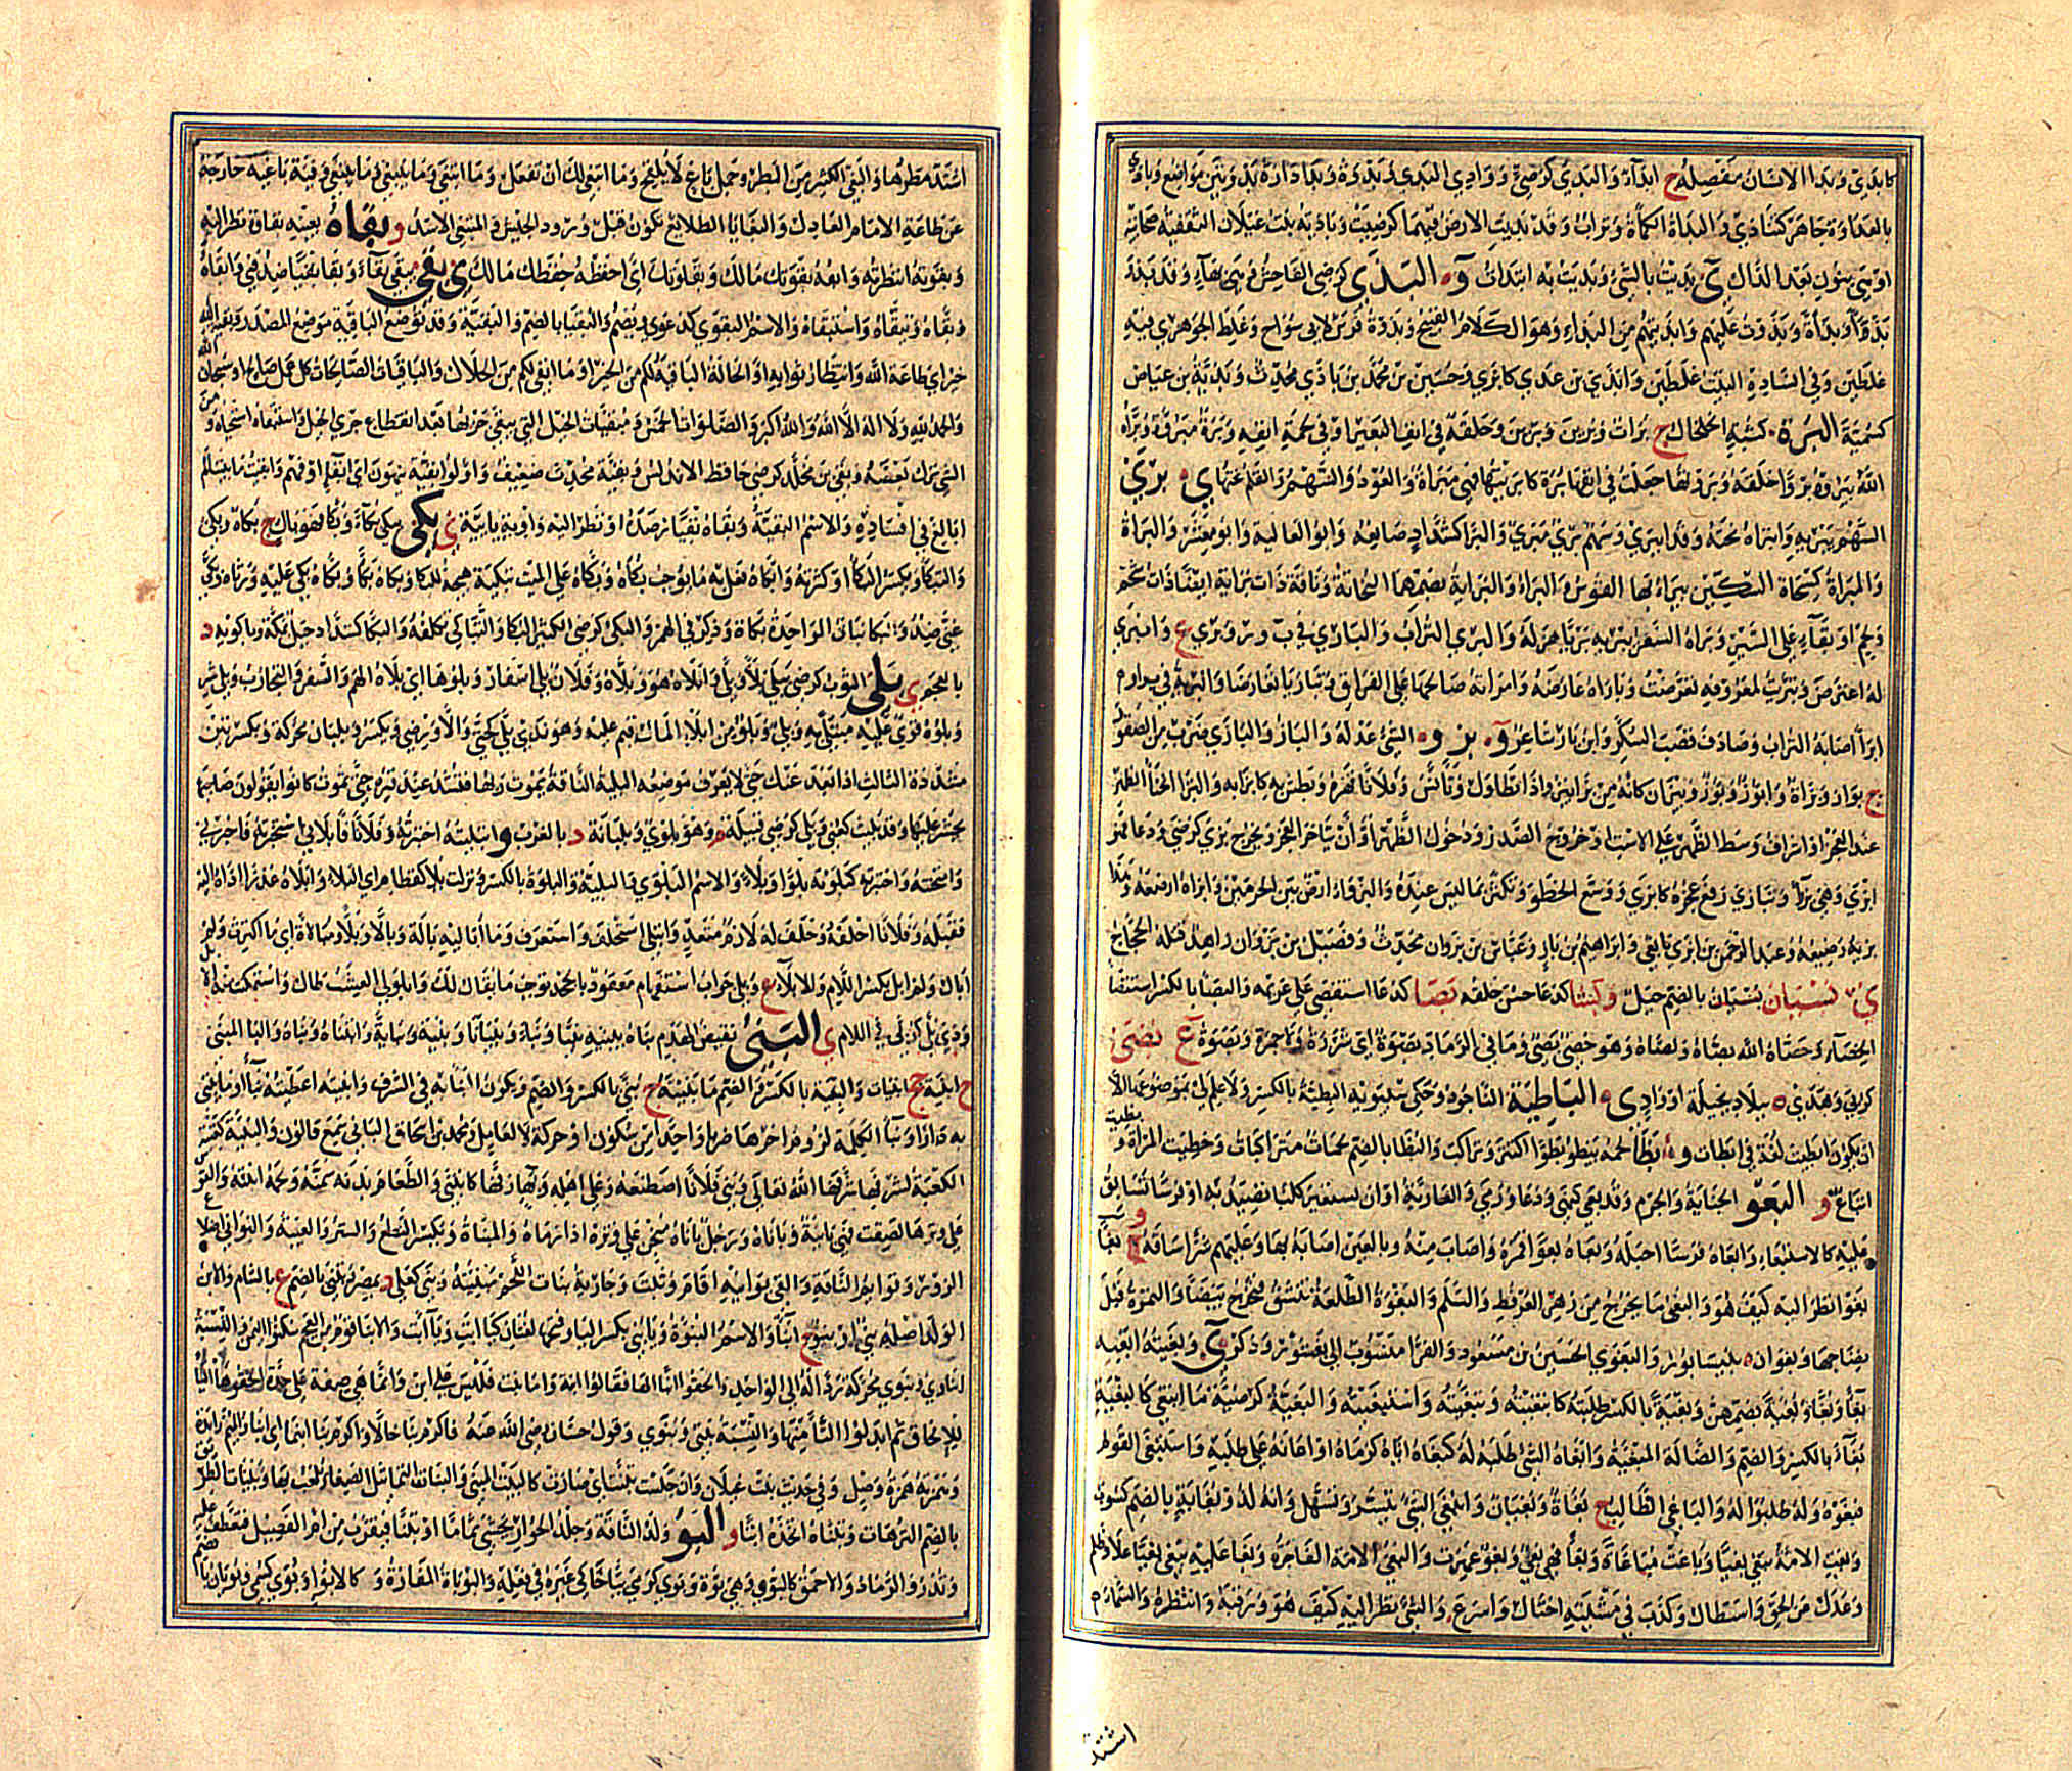 كابدى وبدا الانسان مفصله ج ابداء والبدي كرضي ووادى البدي وبدوة وبدا دارة بدوتين مواضع وبادى
بالعداوة جاهر كتبادى والبداة الكمأة وتراب وقد بديت الارض فيهما كرضيت وبادية بنت غيلان الثقفية صحابية
او هي بنون بعد الدال ى بديت بالشئ وبديت به ابتدات و البذي كرضي الفاحش وهي بهاء وقد بذو
بذاء وبذاءة وبذوت عليهم وابذيتهم من البذاء وهو الكلام القبيح وبذوة فرس لابي سواج وغلط الجوهري فيه
غلطين وفي انشاده البيت غلطين وابذى بن عدي كابزي وحسين بن محمد بن باذي محدث وبذية بن عياض
كسمية و البرة كثبة الخلخال ج برات وبرين وبرين وحلقة في انف البعير او في لحمة انفه وبرة مبروة وبراه
الله يبروه بروا خلقه وبروتها جعلت في انفها برة كابريتها فهي مبراة والعود والسهم والقلم نحتها ى برى
السهم يبريه وابتراه نحته وقد انبرى وسهم بري مبري والبرا كشداد صانعه وابو العالية وابو معشر والبراة
والمبراة كمسحاة السكين يبراء بها القوس والبراء والبراية بضمهما النحاتة وناقة ذات براية اي ذات شحم
ولحم او بقاء على السير وبراه السفر يبريه بريا هزله والبرى التراب والباري في ب ر و وبرى ع وانبرى
له اعترض وتبريت لمعروفه تعرضت وباراه عارضه وامراته صالحها على الفراق وتباريا تعارضا والبرية في ب ر ا
ابرا اصابه التراب وصادف قصب السكر وابن بار شاعر و بزو الشئ عدله والباز والبازي ضرب من الصقور
ج بواز وبزاة وابوز وبوؤز وبيزان كانه من بزا يبزو اذا تطاول وتانس وفلانا قهره وبطش به كابزى به والبزا انحناء الظهر
عند العجز او اشراف وسط الظهر على الاست او خروج الصدر ودخول الظهر او ان يتاخر العجز ويخرج بزي كرضي ودعا فهو
ابزى وهي بزواء وتبازى رفع عجزه كابزى ووسع الخطو وتكثر بما ليس عنده والبزواء ارض بين الحرمين وابزاه ارضعه وهذا
بزيه رضيعه وعبد الرحمن بن ابزى تابعي وابراهيم بن باز وعباس بن بزوان محدث وفضيل بن بزوان زاهد قتله الحجاج
ى بستيان بستيان بالضم جبل و بشا كدعا حسن خلقه بصا كدعا استقصى على غريمه والبصاء بالكسر استقصاء
الخصاء وخصاه الله وبصاه ولصاه وهو خصي بصي وما في الرماد بصوة اي شررة ولا جمرة وبصوة ع بضى
كربي وهدى ه ببلاد بجيلة او واد ى و الباطية الناجود وحكى سيبويه البطية بالكسر ولا علم لي بموضوعها الا
ان يكون ابطيت لغة في ابطات و بظا لحمه يبظو بظوا اكتنز وتراكب والبظا بالضم لحمات متراكبات وحظيت المراة وبظيت
اتباع و البعو الجناية والجرم وقد بعي كنهى ودعا ورمى والعارية او ان تستعير كلبا تصيد به او فرسا تسابق
عليه كالاستبعاء وابعاه فرسا اخبله وبعاه بعوا قمره واصاب منه وبالعين اصابه بها وعليهم شرا ساقه و بغا
بغو انظر اليه كيف هو والبغو ما يخرج من زهر العرفط والسلم والبغوة الطلعة تنشق فتخرج بيضا والثمرة قبل
نضجها وبغوان ه بنيسابور والبغوي الحسين بن مسعود والفرا منسوب الى بغشور وذكر ى وبغيته ابغيه
بغاء وبغا وبغية بضمهن وبغية بالكسر طلبته كابتغيته وتبغيته واستبغيته والبغية كرضية ما ابتغي كالبغية
بغاء بالكسر والضم والضالة المبغية وابغاه الشئ طلبه له كبغاه اياه كرماه او اعانه على طلبه واستبغى القوم
فبغوه وله طلبوا له والباغي الطالب ج بغاة وبغيان وانبغى الشئ تيسر وتسهل وانه لذو بغاية بالضم كسوب
وبغت الامة تبغي بغيا وباغت مباغاة وبغاء فهي بغي وبغو عهرت والبغي الامة الفاجرة وبغى عليه يبغي بغيا علا وظلم
وعدل عن الحق واستطال وكذب في مشيته اختال واسرع والشئ نظر اليه كيف هو ورقبه وانتظره والسماء
اشتد
اشتد مطرها والبغي الكثير من البطر وجمل باغ لا يلقح وما انبغى لك ان تفعل وما ابتغى وما ينبغي وما يبتغي وفية باغية خارجة
عن طاعة الامام العادل والبغايا الطلائع تكون قبل ورود الجيش والمبتغي الاسد و بقاه بعينه بقاوة نظر اليه
وبقوته انتظرته وابقه بقوتك مالك وبقاوتك اي احفظه حفظك مالك ى بقي يبقى بقاء وبقى بقيا ضد فني وابقاه
وبقاه وتبقاه واستبقاه والاسم البقوى كدعوى ويضم والبقيا بالضم والبقية وقد توضع الباقية موضع المصدر وبقية الله
خير اي طاعة الله وانتظار ثوابه او الحالة الباقية لكم من الخير او ما ابقى لكم من الحلال والباقيات الصالحات كل عمل صالح او سبحان الله
والحمد لله ولا اله الا الله والله اكبر والصلوات الخمس ومبقيات الخيل التي يبقى جريها بعد انقطاع جري الخيل واستبقاه استحياه ومن
الشئ ترك بعضه وبقي بن مخلد كرضي حافظ الاندلس وبقية محدث ضعيف واولوا بقية ينهون اي ابقاء او فهم وابقيت ما بيننا لم
ابالغ في افساده والاسم البقية وبقاه بقيا رصده او نظر اليه واوية يائية ى بكى يبكي بكاء وبكا فهو باك ج بكاة وبكي
والتبكاء ويكسر البكا او كثرته وابكاه فعل به ما يوجب بكاه وبكاه على الميت تبكية هيجه للبكا وبكاه بكاء وبكاه بكى عليه ورثاه وبكى
غنى ضد والبكا نبات الواحدة بكاة وذكر في الهمز والبكي كرضي الكثير البكا والتباكي تكلفه والبكا كشداد جبل بمكة وباكويه د
بالعجم ى بلي الثوب كرضي يبلى بلى وبلاء وابلاه هو وبلاه وفلان بلي اسفار وبلوها اي بلاه الهم والسفر والتجارب وبلي شر
وبلوه قوي عليه مبتلى به وبلي وبلو من ابلاء المال قيم عليه وهو بذي بلي كحتى والا ورضي ويكسر وبليان محركة وبكسرتين
مشددة الثالث اذا بعد عنك حتى لا يعرف موضعه والبلية الناقة يموت ربها فتشد عند قبره حتى تموت كانوا يقولون صاحبها
يحشر عليها وقد بليت كعني وبلي كرضي قبيلة م وهو بلوي وبليانة د بالغرب و ابتليته اختبرته وفلانا فابلاني استخبرته فاخبرني
وامتحنته واختبرته كبلوته بلوا وبلاء والاسم البلوى والبلية والبلوة بالكسر ونزلت بلاء كقطام اي البلاء وابلاه عذرا اداه اليه
فقبله وفلانا اخلقه وحلف له لازم متعد وابتلى استحلف واستعرف وما اباليه بالة وبالاء وبلاء ومبالاة اي ما اكترث ولم
ابال ولم ابل بكسر اللام والابلاء ع وبلى جواب استفهام معقود بالجحد توجب ما يقال لك وابلولى العشب طال واستمكنت منه الابل
وذي بلي كربي في اللام ى البني نقيض الهدم بناه يبنيه بنيا وبناء وبنيانا وبنية وبناية وابتناه وبناه والبناء المبني
ج ابنية جج ابنيات والبنية بالكسر والضم ما بنيته ج بنى بالكسر والضم ويكون البناية في الشرف وابنيته اعطيته بناء او ما يبني
به دارا وبناء الكلمة لزوم اخرها ضربا واحدا من سكون او حركة لا لعامل ومحمد بن اسحاق الباني سمع قانون والبنية كغنية
الكعبة لشرفها شرفها الله تعالى وبنى فلانا اصطنعه وعلى اهله وبها زفها كابتنى والطعام بدنه سمنه ولحمه انبته والقوس
على وترها لصقت فهي بانية وباناه ورجل باناة منحن على وتره اذا رماه والمبناة ويكسر النطع والستر والعيبة والبواني اضلاع
الزور وقوايم الناقة والقى بوانيه اقام وثبت وجارية بنات اللحم مبنيته وبنى كعلى د بمصر وتبنى بالضم ع بالشام والابن
الولد اصله بني او بنو ج ابناء والاسم البنوة ويا بني بكسر اليا وفتحها لغتان كيا ابت ويا ابت والابنا قوم من العجم سكنوا اليمن والنسبة
ابناوي وبنوي محركة ردا له الى الواحد والحقوا ابنا الها فقالوا ابنة واما بنت فليس على ابن وانما هي صفة على حدة الحقوها اليا
للالحاق ثم ابدلوا التا منها والنسبة بنتي وبنوي وقول حسان رضي الله عنه فاكرم بنا خالا واكرم بنا ابنما اي ابنا والميم زايدة
وهمزته همزة وصل وفي حديث بنت غيلان وان جلست تبنت اي صارت كالبيت المبني والبنات التماثيل الصغار يلعب بها وبنيات الطريق
بالضم الترهات وتبناه اتخذه ابنا و البو ولد الناقة وجلد الحوار يحشى ثماما او تبنا فيقرب من ام الفصيل فتعطف عليه
وتدر والرماد والاحمق كالبوي وهي بوة وبوي كرمي يبا حاكى غيره في فعله والبوباة المفازة و كالابواء وبوي كسمي وبويان بالضم